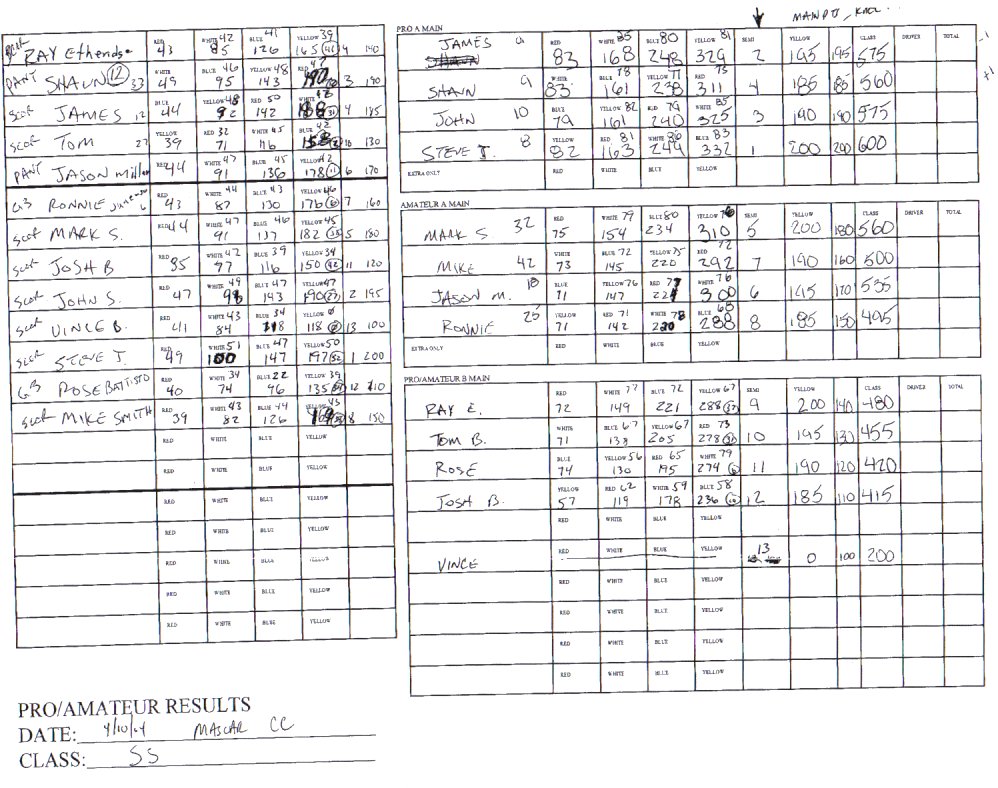 RAY Ethendge RED 43 WHITE 42 85 BLUE 41 126 YELLOW 39 165 (41) 4 140
PANT SHAUN (12) 33 WHITE 49 BLUE 46 95 YELLOW 48 143 RED 47 190 3 190
SCOT JAMES 12 BLUE 44 YELLOW 48 92 RED 50 142 WHITE 4 185
SCOT TOM 27 YELLOW 39 RED 32 71 WHITE 45 116 BLUE 42 158 10 130
PANT JASON Miller RED 44 WHITE 47 91 BLUE 45 136 YELLOW 42 178 (11) 6 170
G3 RONNIE 6 RED 43 WHITE 44 87 BLUE 43 130 YELLOW 46 176 (6) 7 160
SCOT MARK S. RED 44 WHITE 47 91 BLUE 46 137 YELLOW 45 182 5 180
SCOT JOSH B RED 35 WHITE 42 77 BLUE 39 116 YELLOW 34 150 (42) 11 120
SCOT JOHN S. RED 47 WHITE 49 96 BLUE 47 143 YELLOW 47 190 (27) 2 195
SCOT VINCE B. RED 41 WHITE 43 84 BLUE 34 118 YELLOW 0 118 (0) 13 100
SCOT STEVE J. RED 49 WHITE 51 100 BLUE 47 147 YELLOW 50 197 (52) 1 200
G3 ROSE BATTISTO RED 40 WHITE 34 74 BLUE 22 96 YELLOW 39 135 12 110
SCOT MIKE SMITH RED 39 WHITE 43 82 BLUE 44 126 YELLOW 43 8 150
RED WHITE BLUE YELLOW
RED WHITE BLUE YELLOW
RED WHITE BLUE YELLOW
RED WHITE BLUE YELLOW
RED WHITE BLUE YELLOW
RED WHITE BLUE YELLOW
RED WHITE BLUE YELLOW
PRO/AMATEUR RESULTS
DATE: 4/10/04 MASCAR CC
CLASS: SS
PRO A MAIN
JAMES 4 RED 83 WHITE 85 168 BLUE 80 248 YELLOW 81 329 SEMI 2 YELLOW 195 195 CLASS 575 DRIVER TOTAL
SHAUN 9 WHITE 83 BLUE 78 161 YELLOW 77 238 RED 73 311 4 185 185 560
JOHN 10 BLUE 79 YELLOW 82 161 RED 79 240 WHITE 85 325 3 190 190 575
STEVE J. 8 YELLOW 82 RED 81 163 WHITE 86 249 BLUE 83 332 1 200 200 600
EXTRA ONLY RED WHITE BLUE YELLOW
AMATEUR A MAIN
MARK S 32 RED 75 WHITE 79 154 BLUE 80 234 YELLOW 76 310 SEMI 5 YELLOW 200 180 CLASS 560 DRIVER TOTAL
MIKE 42 WHITE 73 BLUE 72 145 YELLOW 75 220 RED 72 292 7 190 160 500
JASON M. 18 BLUE 71 YELLOW 76 147 RED 77 224 WHITE 76 300 6 195 170 535
RONNIE 25 YELLOW 71 RED 71 142 WHITE 78 220 BLUE 68 288 8 185 150 495
EXTRA ONLY RED WHITE BLUE YELLOW
PRO/AMATEUR B MAIN
RAY E. RED 72 WHITE 77 149 BLUE 72 221 YELLOW 67 288 SEMI 9 YELLOW 200 140 CLASS 480 DRIVER TOTAL
TOM B. WHITE 71 BLUE 67 138 YELLOW 67 205 RED 73 278 10 195 130 455
ROSE BLUE 74 YELLOW 56 130 RED 65 195 WHITE 79 274 (6) 11 190 120 420
JOSH B. YELLOW 57 RED 62 119 WHITE 59 178 BLUE 58 236 12 185 110 415
RED WHITE BLUE YELLOW
VINCE RED WHITE BLUE YELLOW 13 0 100 200
RED WHITE BLUE YELLOW
RED WHITE BLUE YELLOW
RED WHITE BLUE YELLOW
RED WHITE BLUE YELLOW